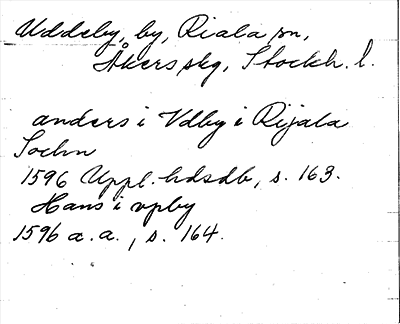 Uddeby, by, Riala sn,
Åkers skg, Stockh. l.
anders i Vdby i Rijala
Sochn
1596 Uppl. hdsdb, s. 163.
Hans i vpby
1596 a. a., s. 164.